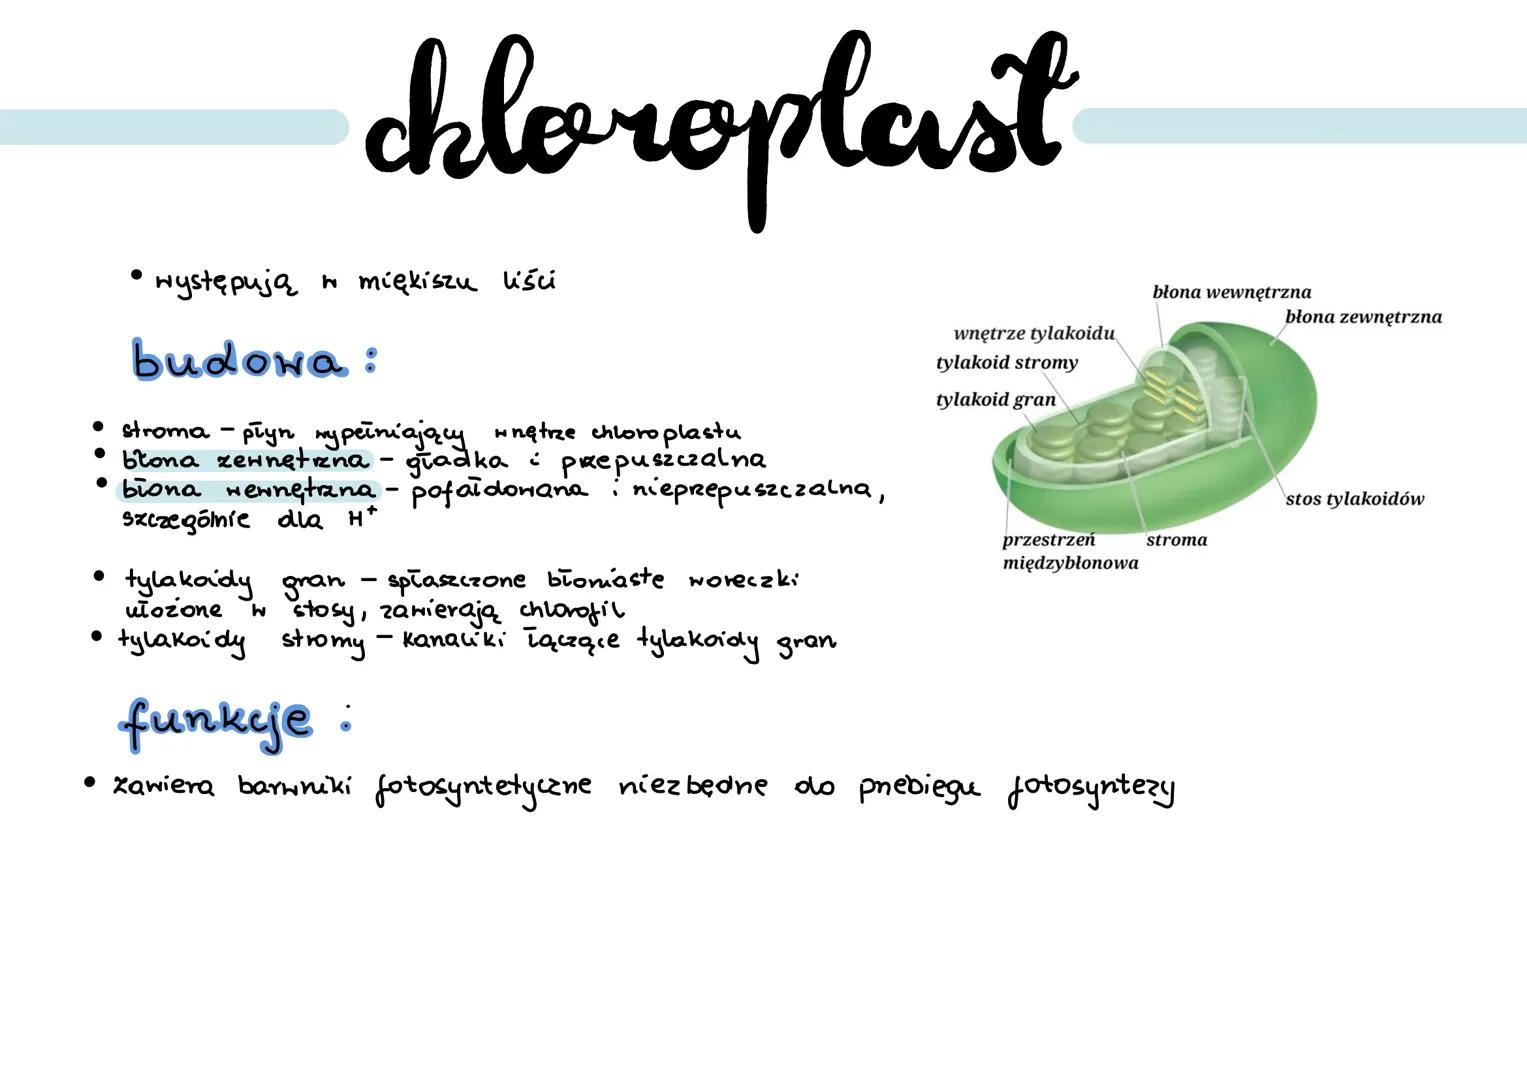 chloroplast
• występują w miękiszu liści
budowa:
• stroma – płyn wypełniający wnętrze chloroplastu
• błona zewnętrzna – gładka i przepuszczalna
• błona wewnętrzna – pofałdowana i nieprzepuszczalna,
szczególnie dla H⁺
• tylakoidy gran – spłaszczone błoniaste woreczki
ułożone w stosy, zawierają chlorofil
• tylakoidy stromy – kanaliki łączące tylakoidy gran
funkcje:
• zawiera barwniki fotosyntetyczne niezbędne do przebiegu fotosyntezy
błona wewnętrzna
błona zewnętrzna
wnętrze tylakoidu
tylakoid stromy
tylakoid gran
stos tylakoidów
przestrzeń
międzybłonowa
stroma